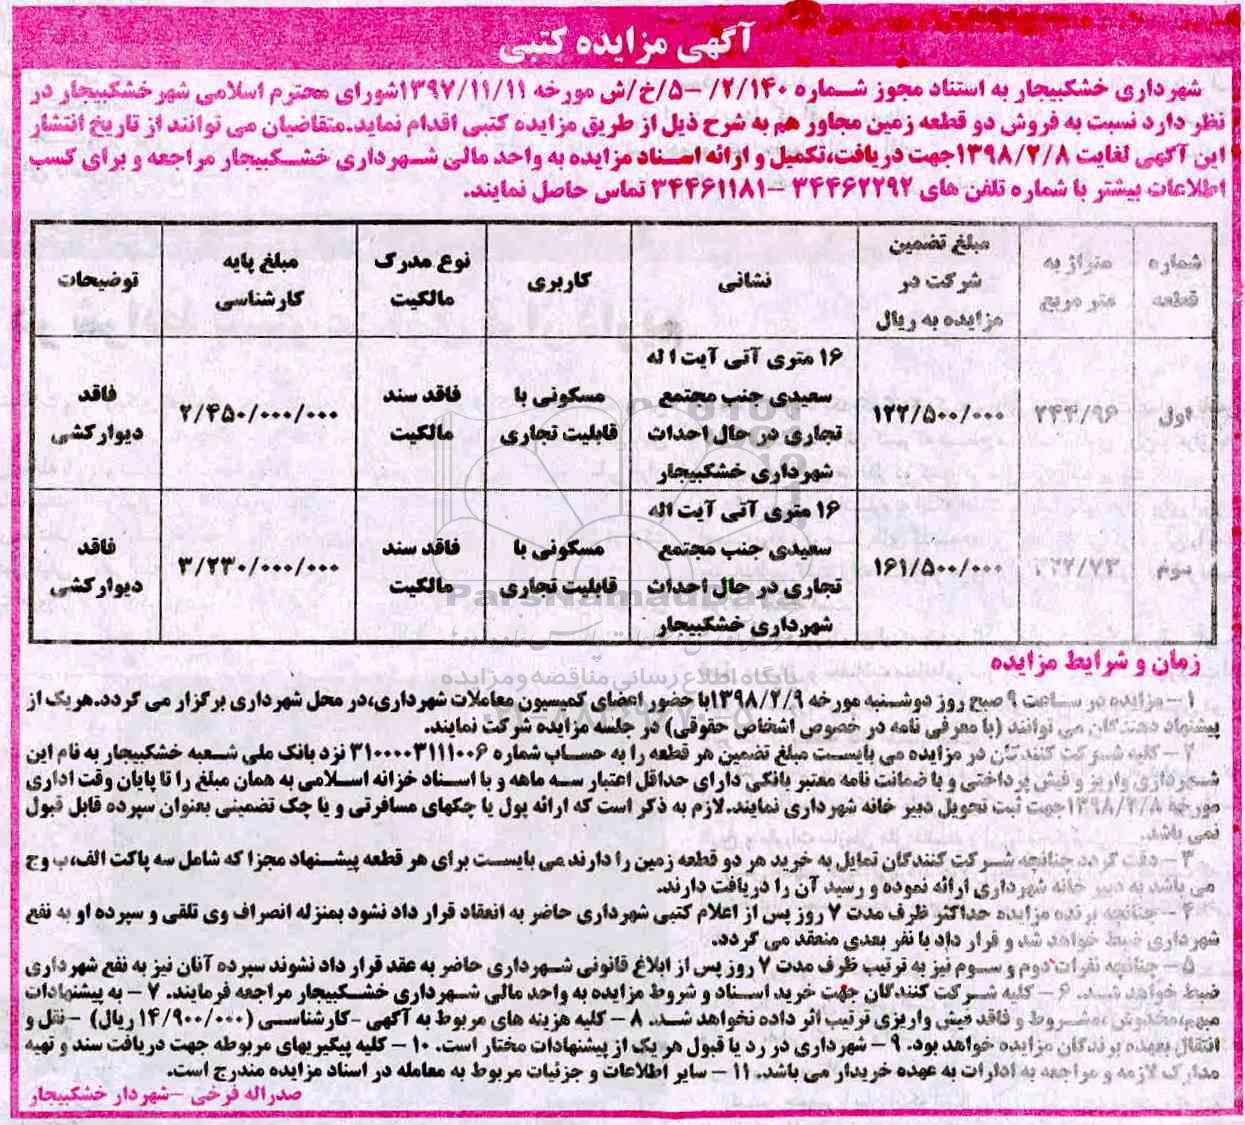 آگهی مزایده کتبی
شهرداری خشکبیجار به استناد مجوز شماره ۲/۱۴۰/ -۵/خ/ش مورخه ۱۳۹۷/۱۱/۱۱شورای محترم اسلامی شهر خشکبیجار در
نظر دارد نسبت به فروش دو قطعه زمین مجاور هم به شرح ذیل از طریق مزایده کتبی اقدام نماید.متقاضیان می توانند از تاریخ انتشار
این آگهی لغایت ۱۳۹۸/۲/۸جهت دریافت،تکمیل و ارائه اسناد مزایده به واحد مالی شهرداری خشکبیجار مراجعه و برای کسب
اطلاعات بیشتر با شماره تلفن های ۳۴۴۶۲۲۹۲ –۳۴۴۶۱۱۸۱ تماس حاصل نمایند.
شماره قطعه | متراژ به متر مربع | مبلغ تضمین شرکت در مزایده به ریال | نشانی | کاربری | نوع مدرک مالکیت | مبلغ پایه کارشناسی | توضیحات
اول | ۲۴۴/۹۶ | ۱۲۲/۵۰۰/۰۰۰ | ۱۶ متری آتی آیت ا له سعیدی جنب مجتمع تجاری در حال احداث شهرداری خشکبیجار | مسکونی با قابلیت تجاری | فاقد سند مالکیت | ۲/۴۵۰/۰۰۰/۰۰۰ | فاقد دیوارکشی
دوم | ۱۶۱/۵۰۰/۰۰۰ | ۱۶ متری آتی آیت اله سعیدی جنب مجتمع تجاری در حال احداث شهرداری خشکبیجار | مسکونی با قابلیت تجاری | فاقد سند مالکیت | ۳/۲۳۰/۰۰۰/۰۰۰ | فاقد دیوارکشی
ParsNamadData
پایگاه اطلاع رسانی مناقصه و مزایده
زمان و شرایط مزایده
۱– مزایده در ساعت ۹ صبح روز دوشنبه مورخه ۱۳۹۸/۲/۹با حضور اعضای کمیسیون معاملات شهرداری،در محل شهرداری برگزار می گردد.هریک از
پیشنهاد دهندگان می توانند (با معرفی نامه در خصوص اشخاص حقوقی) در جلسه مزایده شرکت نمایند.
۲– کلیه شرکت کنندگان در مزایده می بایست مبلغ تضمین هر قطعه را به حساب شماره ۳۱۰۰۰۰۳۱۱۱۰۰۶ نزد بانک ملی شعبه خشکبیجار به نام این
شهرداری واریز و فیش پرداختی و یا ضمانت نامه معتبر بانکی دارای حداقل اعتبار سه ماهه و با اسناد خزانه اسلامی به همان مبلغ را تا پایان وقت اداری
مورخه ۱۳۹۸/۲/۸جهت ثبت تحویل دبیر خانه شهرداری نمایند.لازم به ذکر است که ارائه پول یا چکهای مسافرتی و یا چک تضمینی بعنوان سپرده قابل قبول
نمی باشد.
۳– دقت گردد چنانچه شرکت کنندگان تمایل به خرید هر دو قطعه زمین را دارند می بایست برای هر قطعه پیشنهاد مجزا که شامل سه پاکت الف،ب وج
می باشد به دبیر خانه شهرداری ارائه نموده و رسید آن را دریافت دارند.
۴– چنانچه برنده مزایده حداکثر ظرف مدت ۷ روز پس از اعلام کتبی شهرداری حاضر به انعقاد قرار داد نشود بمنزله انصراف وی تلقی و سپرده او به نفع
شهرداری ضبط خواهد شد و قرار داد با نفر بعدی منعقد می گردد.
۵– چنانچه نفرات دوم و سوم نیز به ترتیب ظرف مدت ۷ روز پس از ابلاغ قانونی شهرداری حاضر به عقد قرار داد نشوند سپرده آنان نیز به نفع شهرداری
ضبط خواهد شد. ۶– کلیه شرکت کنندگان جهت خرید اسناد و شروط مزایده به واحد مالی شهرداری خشکبیجار مراجعه فرمایند. ۷– به پیشنهادات
مبهم،مخدوش،مشروط و فاقد فیش واریزی ترتیب اثر داده نخواهد شد. ۸– کلیه هزینه های مربوط به آگهی -کارشناسی (۱۴/۹۰۰/۰۰۰ریال) –نقل و
انتقال بعهده برندگان مزایده خواهد بود. ۹– شهرداری در رد یا قبول هر یک از پیشنهادات مختار است. ۱۰– کلیه پیگیریهای مربوطه جهت دریافت سند و تهیه
مدارک لازمه و مراجعه به ادارات به عهده خریدار می باشد. ۱۱– سایر اطلاعات و جزئیات مربوط به معامله در اسناد مزایده مندرج است.
صدراله فرخی –شهردار خشکبیجار